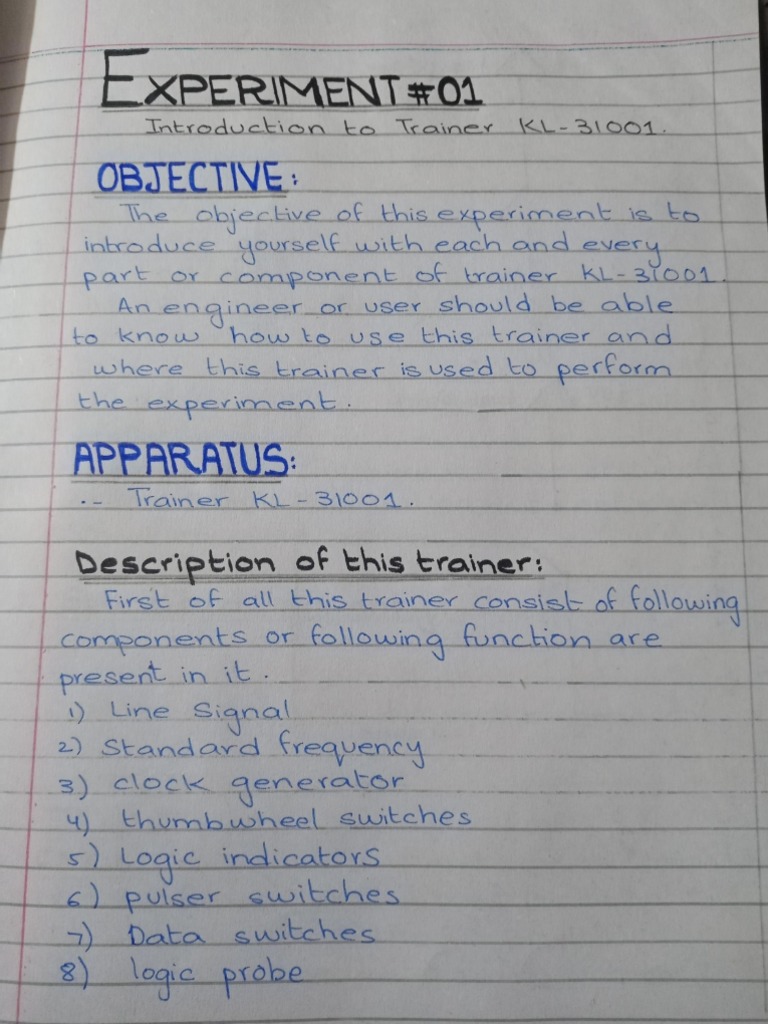 EXPERIMENT #01
Introduction to Trainer KL-31001.
OBJECTIVE:
The objective of this experiment is to
introduce yourself with each and every
part or component of trainer KL-31001.
An engineer or user should be able
to know how to use this trainer and
where this trainer is used to perform
the experiment.
APPARATUS:
.- Trainer KL-31001.
Description of this trainer:
First of all this trainer consist of following
components or following function are
present in it.
1) Line Signal
2) Standard frequency
3) clock generator
4) thumbwheel switches
5) Logic indicators
6) pulser switches
7) Data switches
8) logic probe